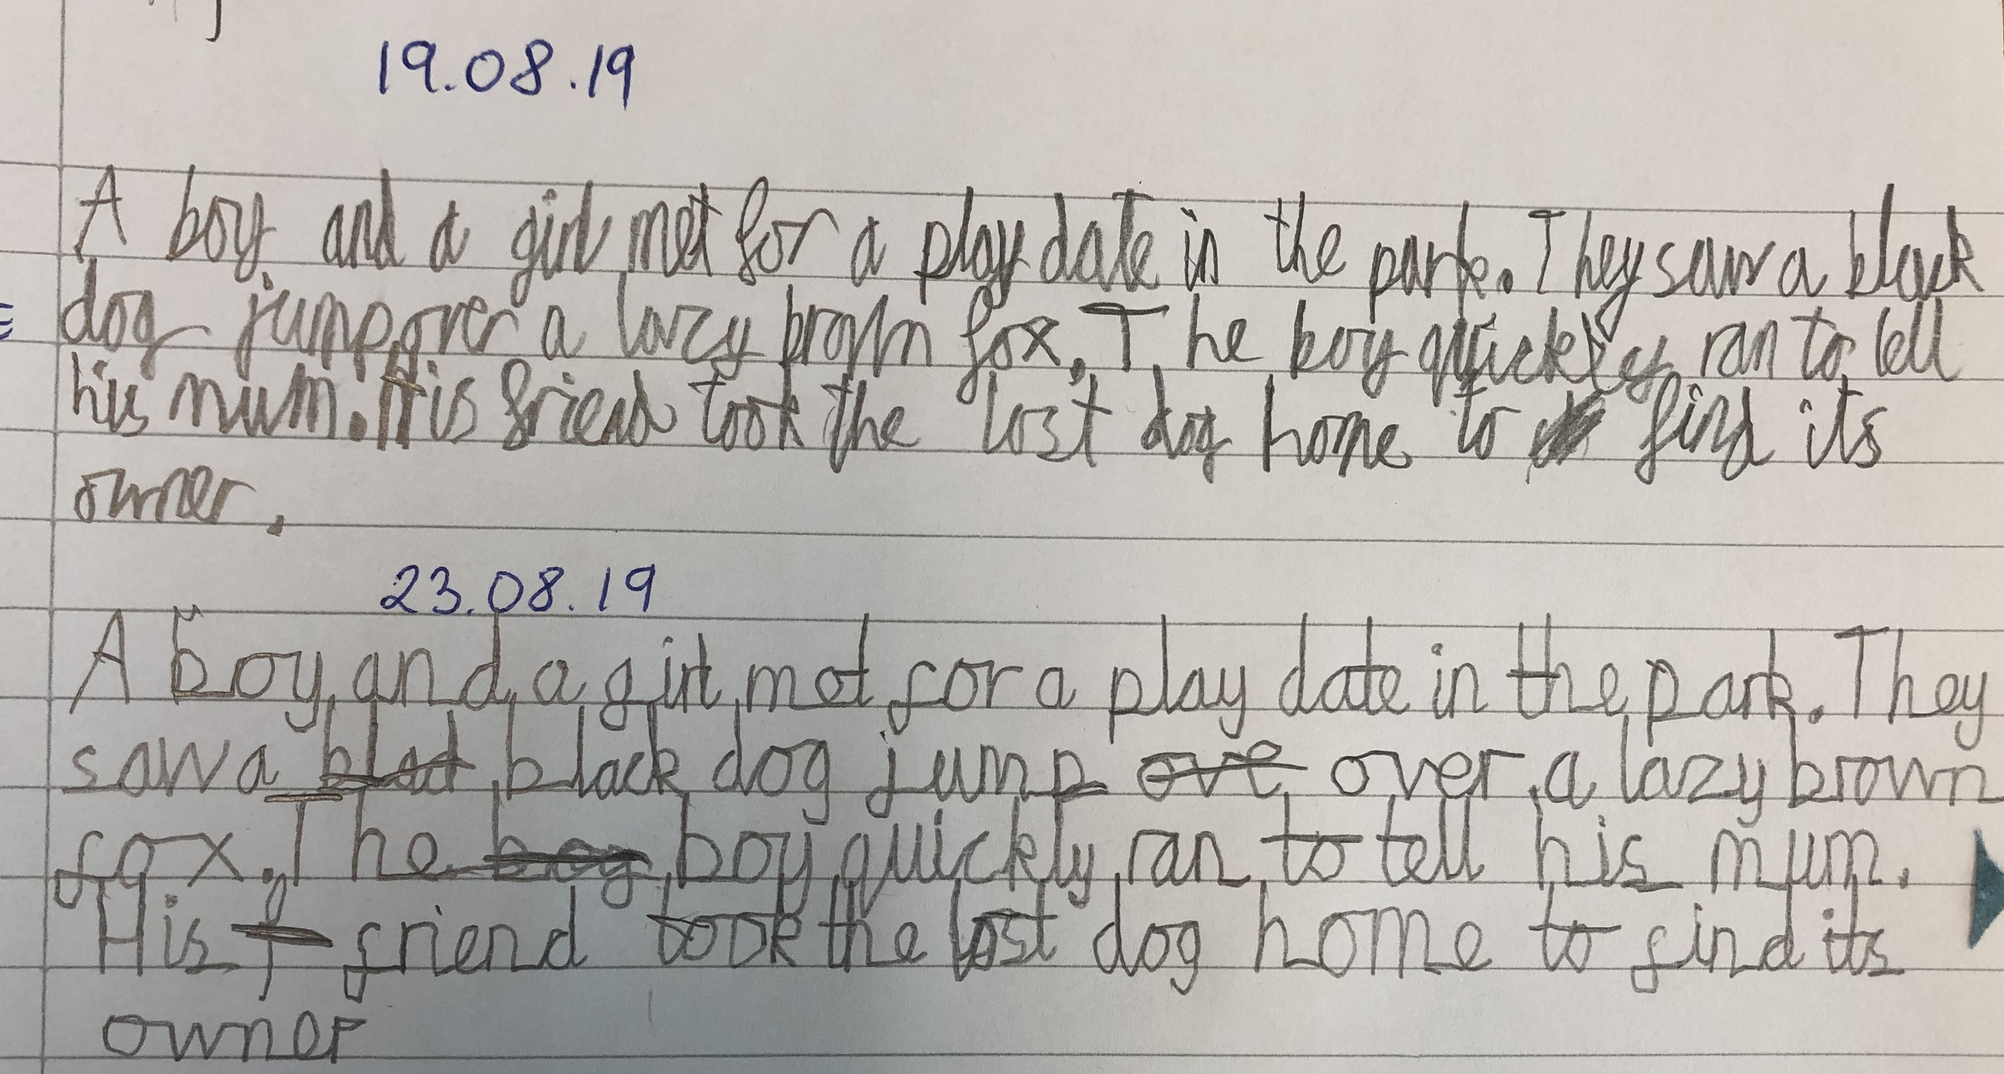 19.08.19
A boy and a girl met for a play date in the park. They saw a black
dog jump over a lazy brown fox. The boy quickly ran to tell
his mum. His friend took the lost dog home to find its
owner.
23.08.19
A boy and a girl met for a play date in the park. They
saw a blad black dog jump ove over a lazy brown
fox. The bog boy quickly ran to tell his mum.
His f friend took the lost dog home to find its
owner